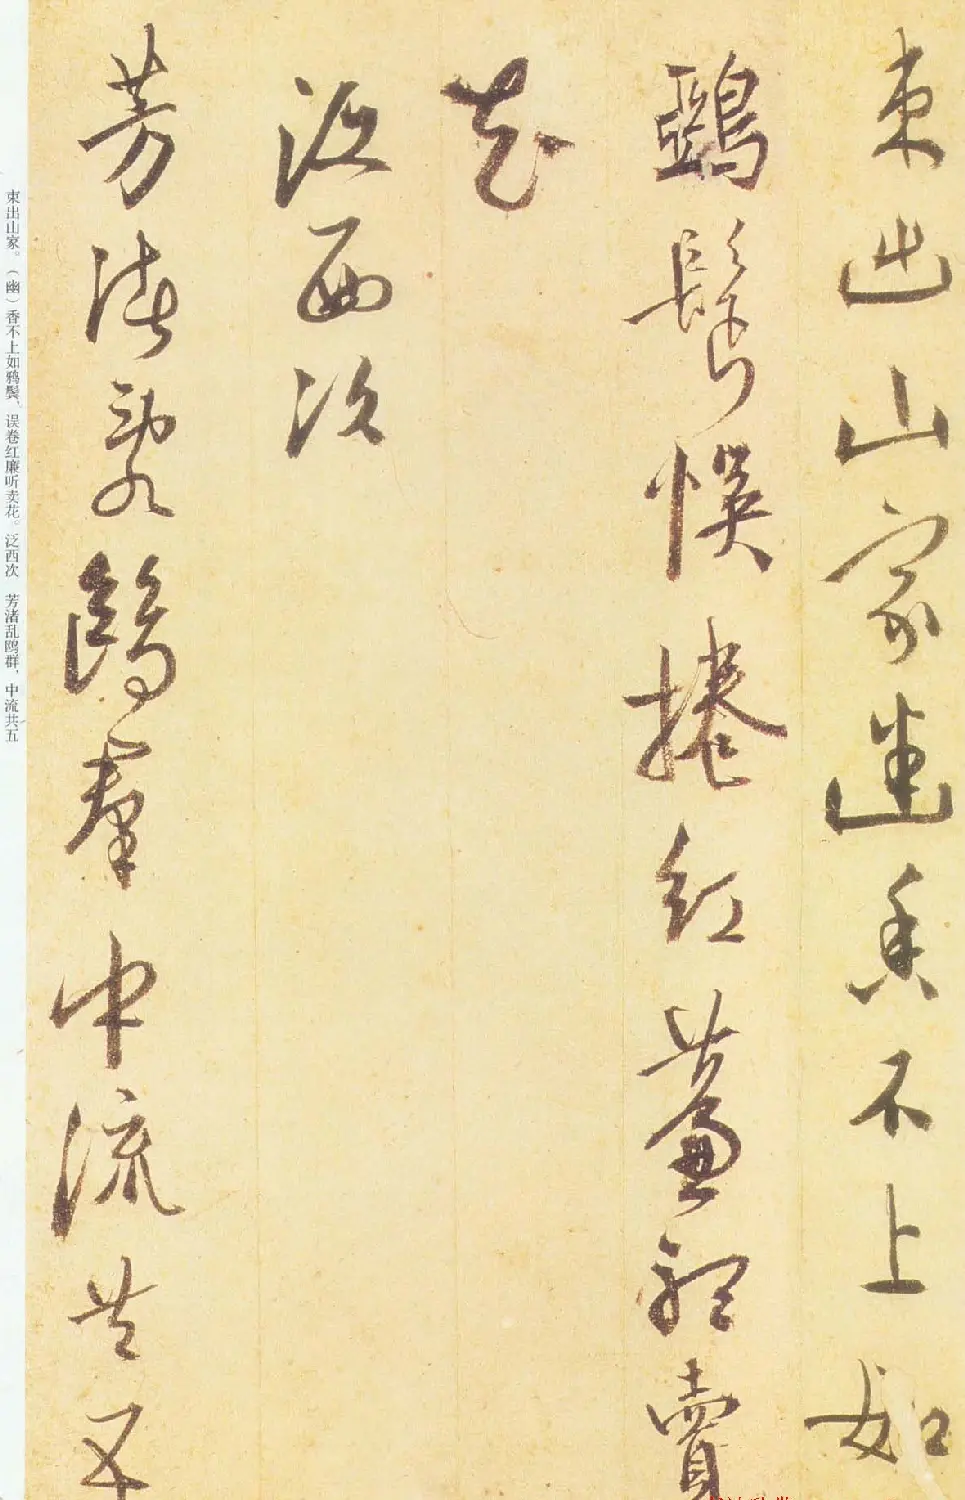 束出山家香不上如
鵶鬢悮捲紅薕聽賣
花
泛西次
芳渚亂鷗羣中流共五
束出山家。（幽）香不上如鸦鬓，误卷红廉听卖花。泛西次 芳渚乱鸥群，中流共五